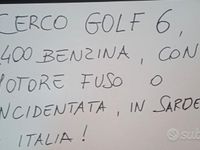 CERCO GOLF 6,
1.400 BENZINA, CON
MOTORE FUSO O
INCIDENTATA, IN SARDE
ITALIA!
subito